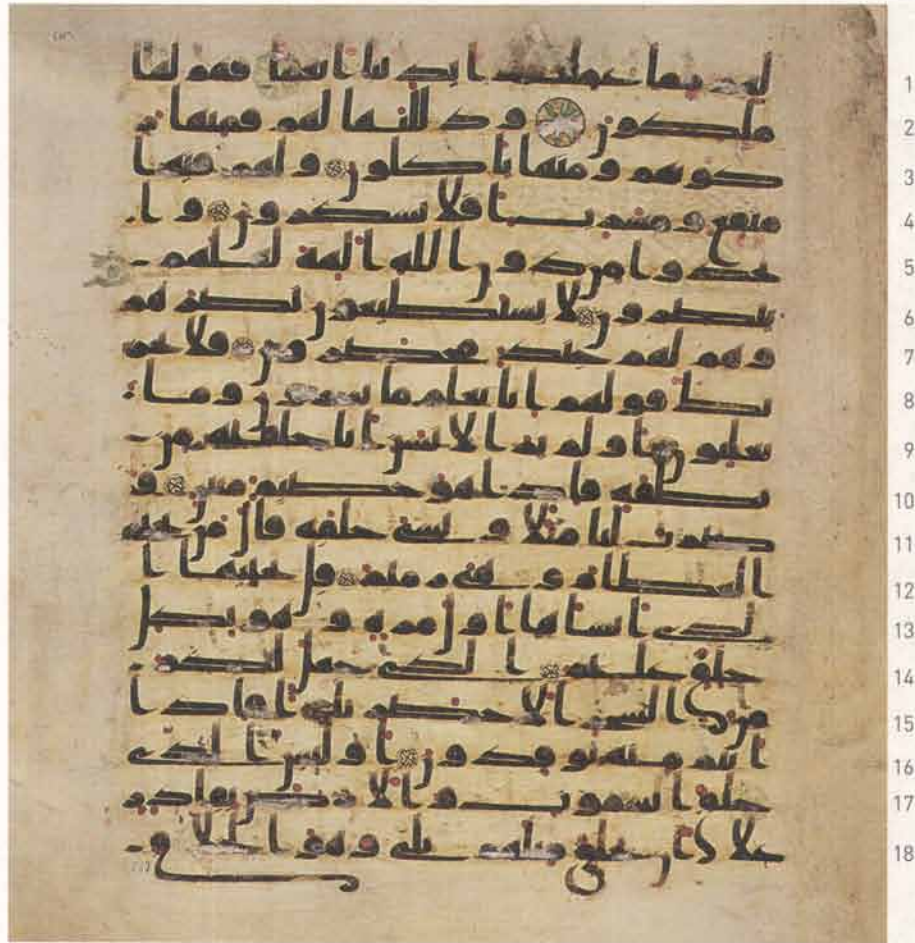 1 لهم مما عملت ايدينا انعما فهم لها
2 ملكون وذللنها لهم فمنها ر
3 كوبهم ومنها ياكلون ولهم فيها
4 منفع ومشرب افلا يشكرون وا
5 تخذوا من دون الله الهة لعلهم
6 ينصرون لا يستطيعون نصرهم
7 وهم لهم جند محضرون فلا يحز
8 نك قولهم انا نعلم ما يسرون وما
9 يعلنون اولم ير الانسن انا خلقنه من
10 نطفة فاذا هو خصيم مبين و
11 ضرب لنا مثلا ونسي خلقه قال من يحي
12 العظام وهي رميم قل يحييها ا
13 لذي انشاها اول مرة وهو بكل
14 خلق عليم الذي جعل لكم
15 من الشجر الاخضر نارا فاذا ا
16 نتم منه توقدون اوليس الذي
17 خلق السموت والارض بقدر
18 على ان يخلق مثلهم بلى وهو الخلاق